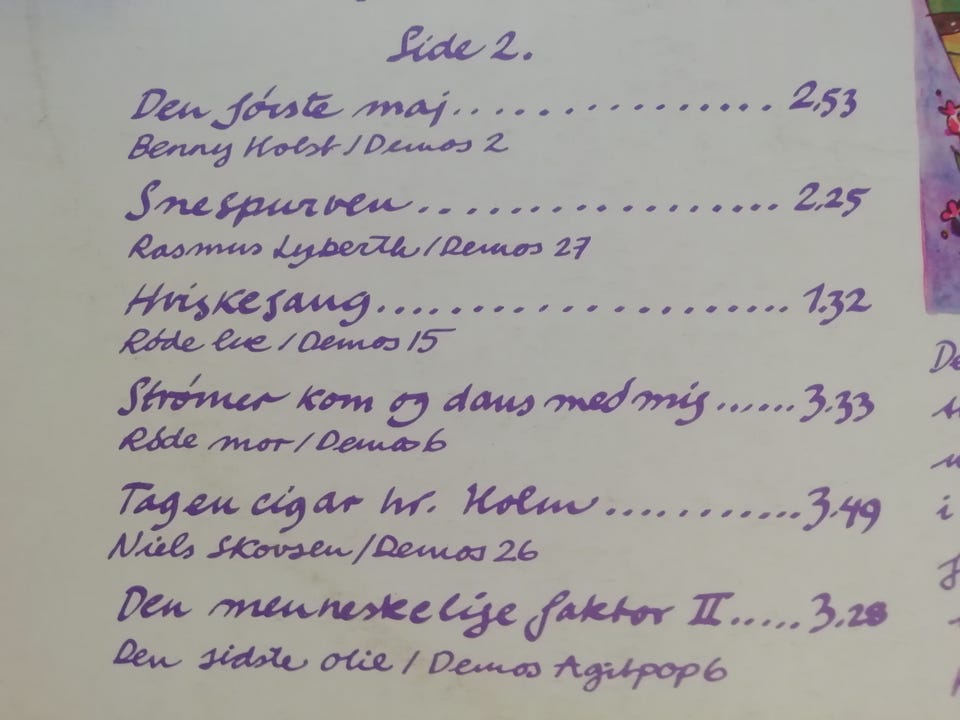 Side 2.
Den första maj................2,53
Benny Holst/Demos 2
Snespurven.................2,25
Rasmus Lyberth/Demos 27
Hviskesang....................1.32
Røde lue/Demos 15
Strømer kom og dans med mig......3.33
Røde mor/Demos 6
Tag en cigar hr. Holm...........3.49
Niels Skovsen/Demos 26
Den menneskelige faktor II.....3.28
Den sidste olie/Demos Agitpop 6
De
i